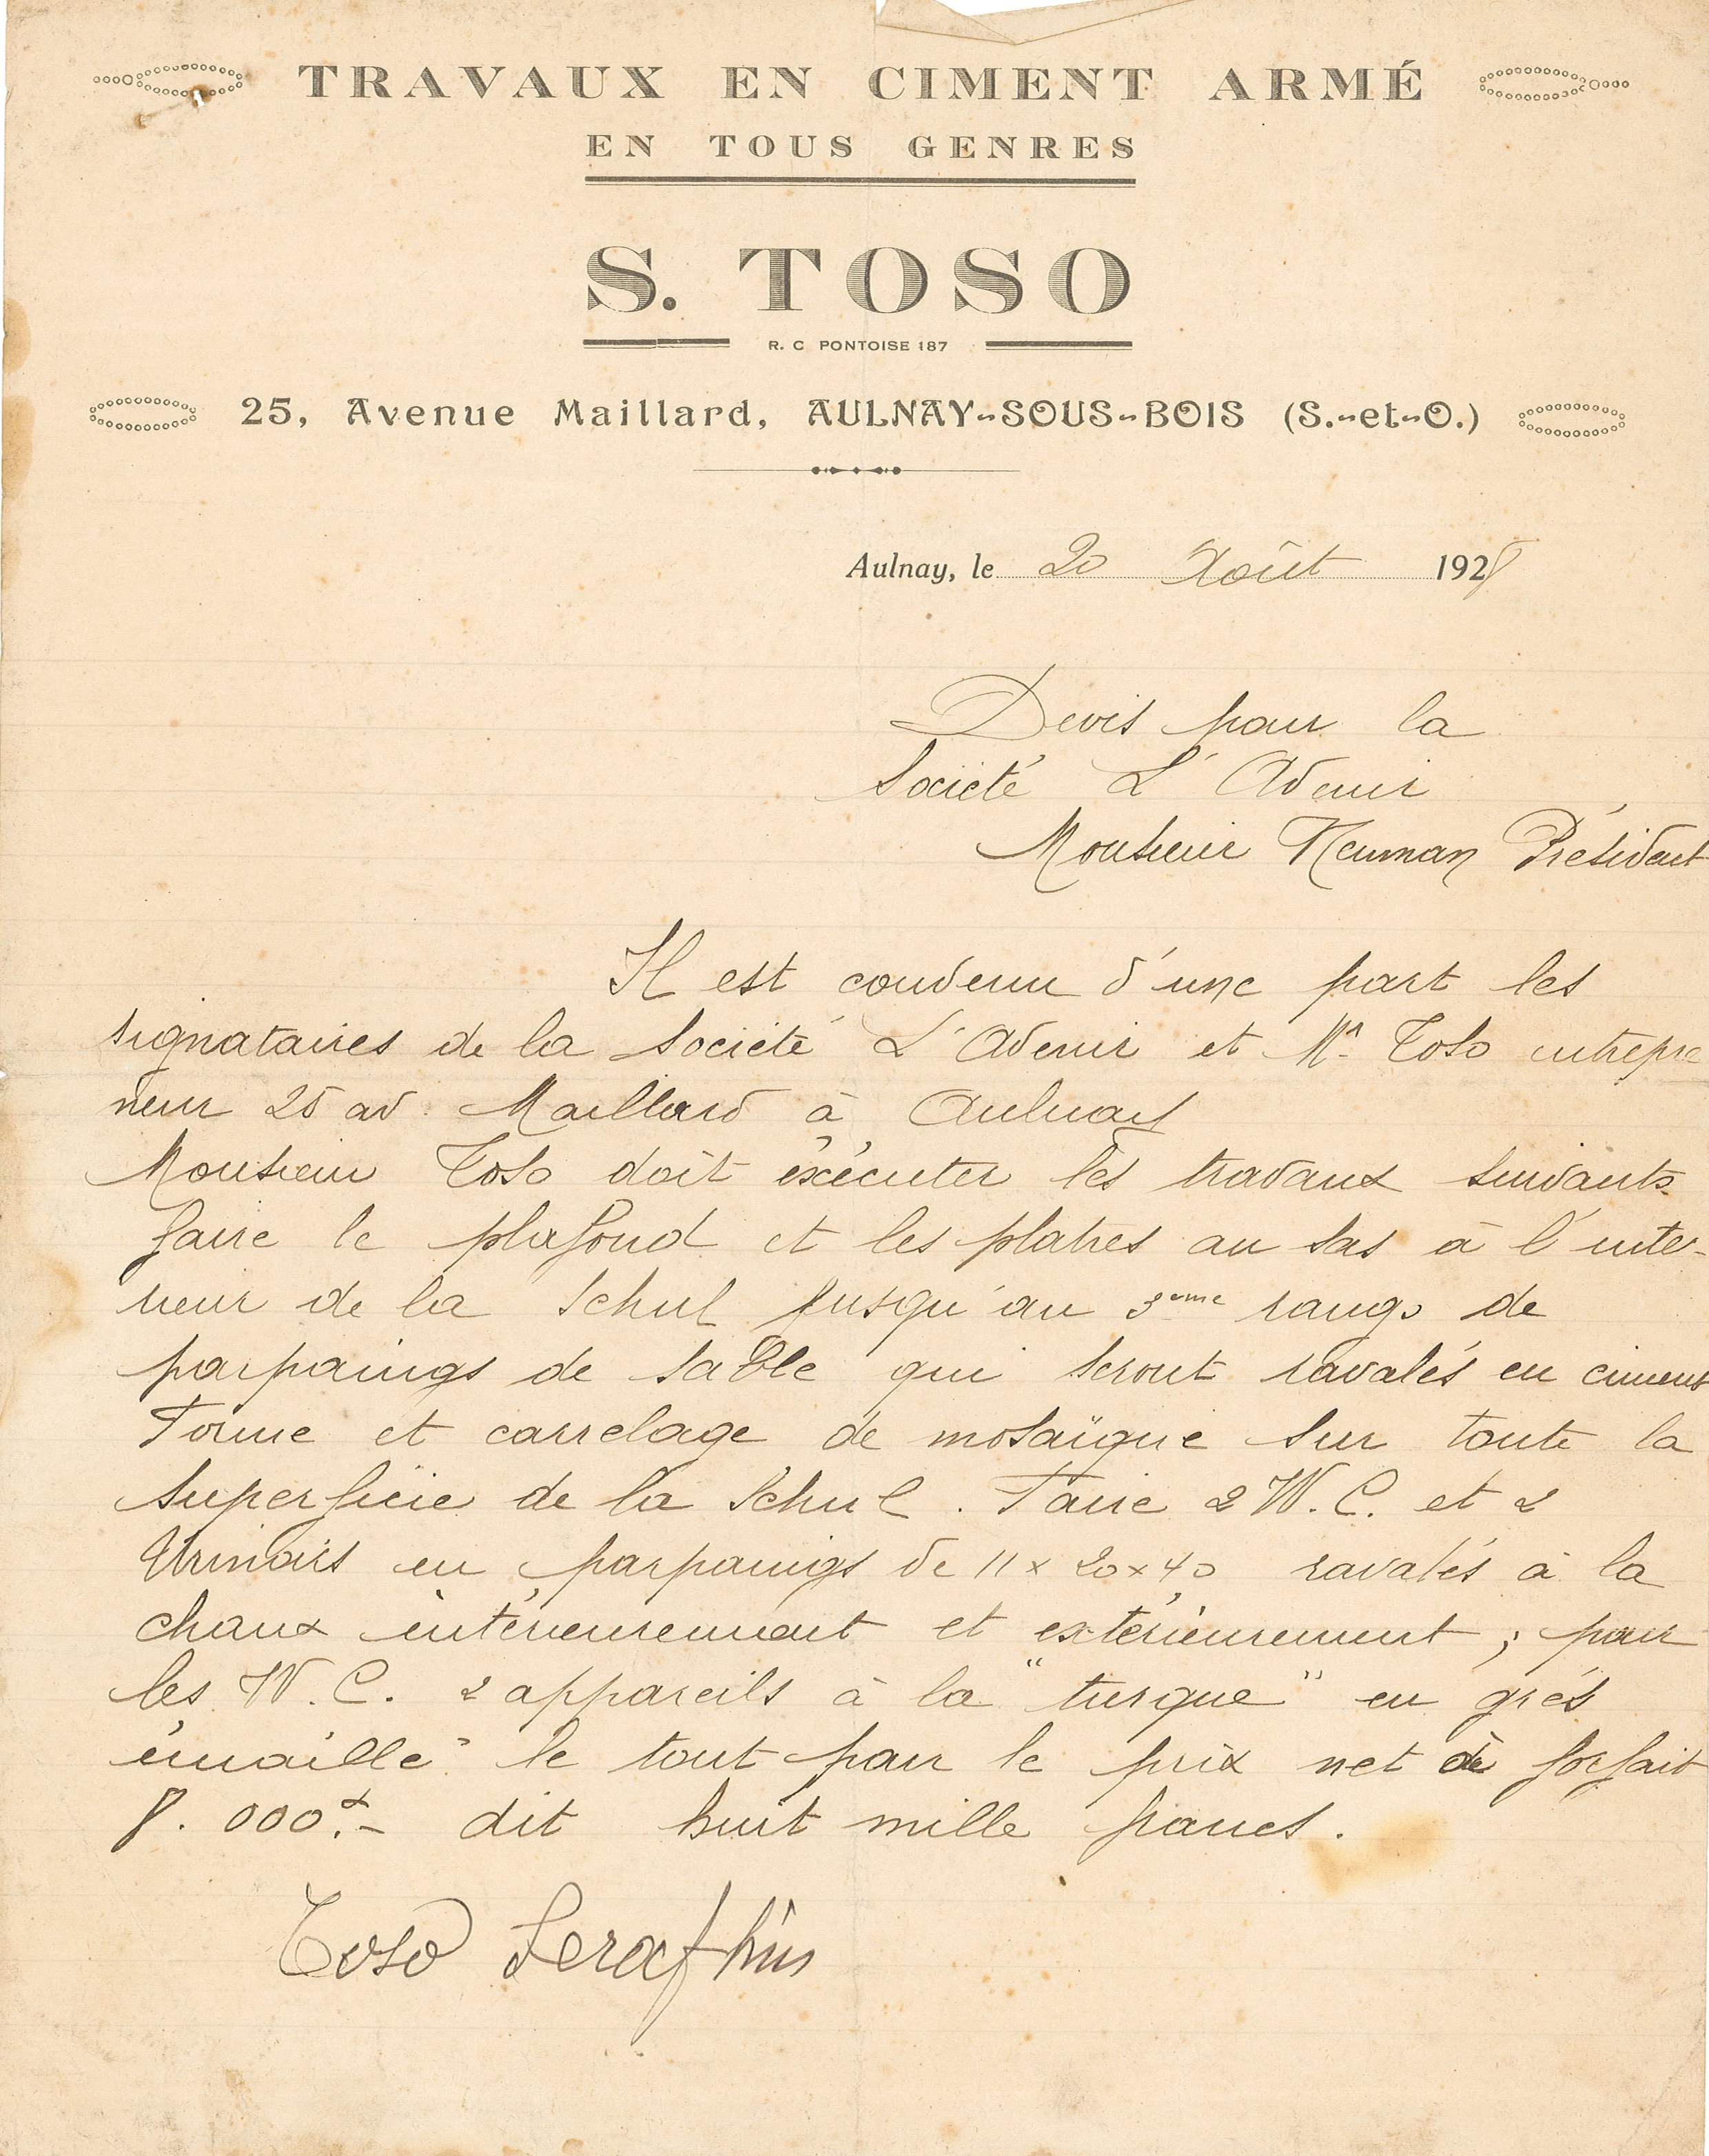 TRAVAUX EN CIMENT ARMÉ
EN TOUS GENRES
S. TOSO
R. C PONTOISE 187
25, Avenue Maillard, AULNAY-SOUS-BOIS (S.-et-O.)
Aulnay, le 20 Août 1928
Devis pour la
Société L'Avenir
Monsieur Neuman Président
Il est convenu d'une part les
signataires de la Société L'Avenir et Mr Toso entrepre
neur 25 av. Maillard à Aulnay
Monsieur Toso doit éxécuter les travaux suivants
faire le plafond et les platres au sas à l'inte-
rieur de la Schul jusqu'au 3eme rangs de
parpaings de sable qui seront ravalés en ciment
Forme et carrelage de mosaïque sur toute la
superficie de la Schul. Faire 2 W.C. et 2
Urinoirs en parpaings de 11 x 20 x 40 ravalés à la
chaux intérieurement et extérieurement ; pour
les W.C. 2 appareils à la "turque" en grés
émaillé le tout pour le prix net de forfait
8.000.- dit huit mille francs.
Toso Seraphin